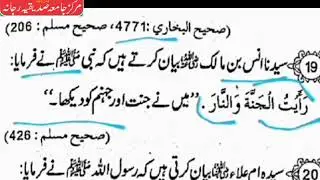 مرکز جامعہ صدیقیہ رجانہ
(صحیح البخاري: 4771، صحیح مسلم: 206)
19 سیدنا انس بن مالک رضی اللہ عنہ بیان کرتے ہیں کہ نبی ﷺ نے فرمایا:
رَأَيْتُ الْجَنَّةَ وَالنَّارَ. ”میں نے جنت اور جہنم کو دیکھا۔“
(صحیح مسلم: 426)
20 سیدہ ام علاء بیان کرتی ہیں کہ رسول اللہ ﷺ نے فرمایا: